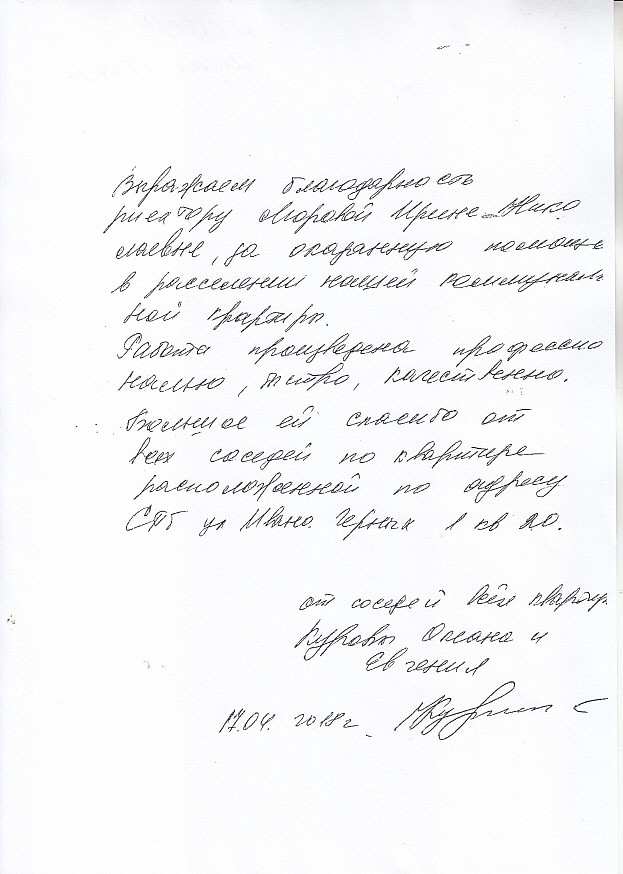 Выражаем благодарность
риелтору Моровой Ирине Нико
лаевне, за оказанную помощь
в расселении нашей коммуналь
ной квартиры.
Работа произведена профессио
нально, быстро, качественно.
Большое ей спасибо от
всех соседей по квартире
расположенной по адресу
СПб ул Ивана Черных 1 кв 20.
от соседей всех квартир
Куровы Оксана и
Евгений
17.04. 2018 г.